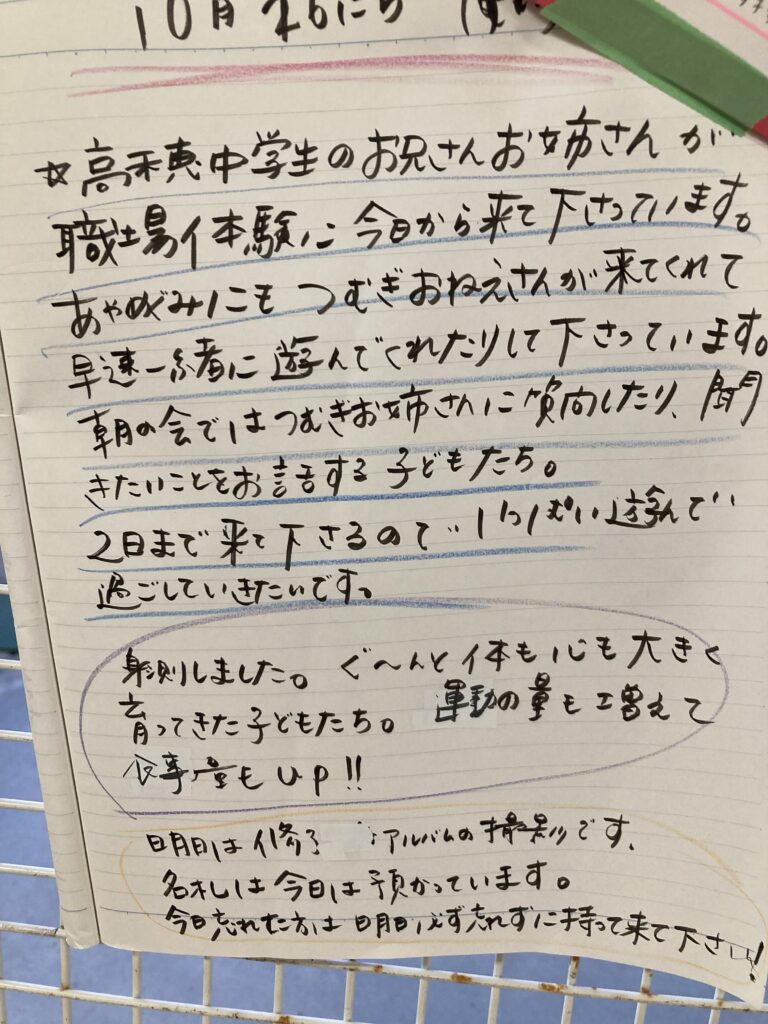 10月26にち
☆高禾恵中学生のお兄さんお姉さんが
職場体験に今日から来て下さっています。
あやめぐみにも つむぎおねえさんが来てくれて
早速一緒に遊んでくれたりして下さっています。
朝の会ではつむぎお姉さんに質問したり、聞
きたいことをお話する子どもたち。
2日まで来て下さるので いっぱい遊んで
過ごしていきたいです。
身測しました。ぐ〜んと体も心も大きく
育ってきた子どもたち。運動の量も増えて
食事量もUP!!
明日は修了 アルバムの撮影です。
名札は今日は預かっています。
今日忘れた方は明日必ず忘れずに持って来て下さい!